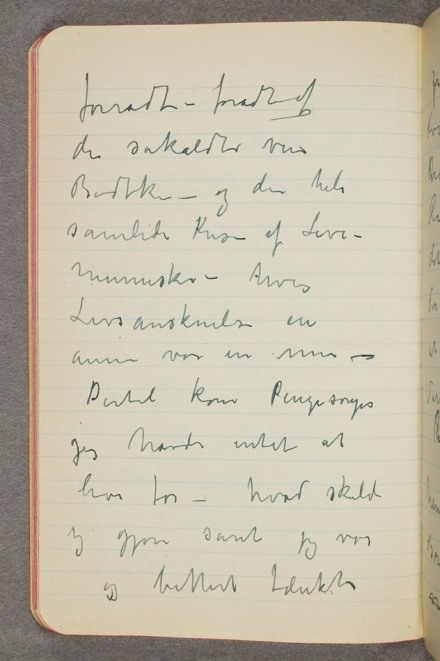 forraadt – foraadt af
den sakaldte ven
Bødtker – og den hele
samlede Krese af Leve-
mennesker – hvis
Livsanskuelse en
annen var en min –
Dertil kom Pengesorger
jeg havde intet at
leve for – hvad skulde
jeg gjøre samt jeg var
og bittert tænkte